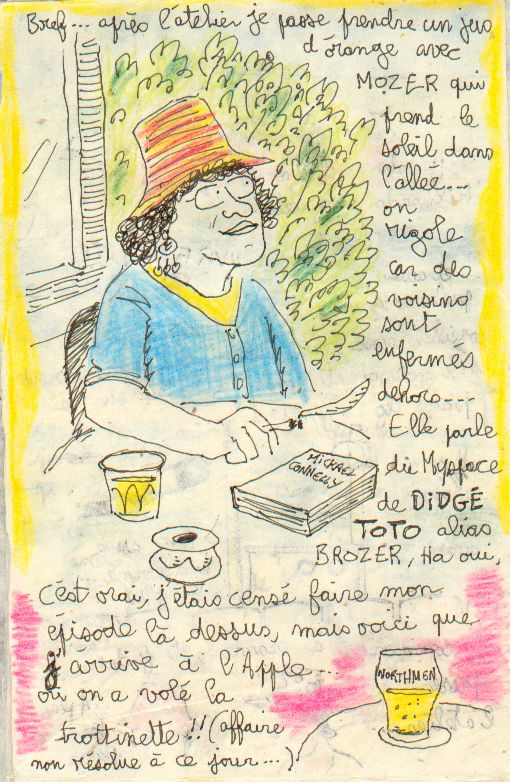 Bref... après l'atelier je passe prendre un jus
d'orange avec
MOZER qui
prend le
soleil dans
l'allée...
on
rigole
car des
voisins
sont
enfermés
dehors...
Elle parle
du Myspace
de DiDGÉ
TOTO alias
BROZER, Ha oui,
MICHAEL
CONNELLY
c'est vrai, j'étais censé faire mon
épisode là dessus, mais voici que
j'arrive à l'Apple...
où on a volé la
trottinette!! (affaire
non résolue à ce jour...)
NORTHMEN